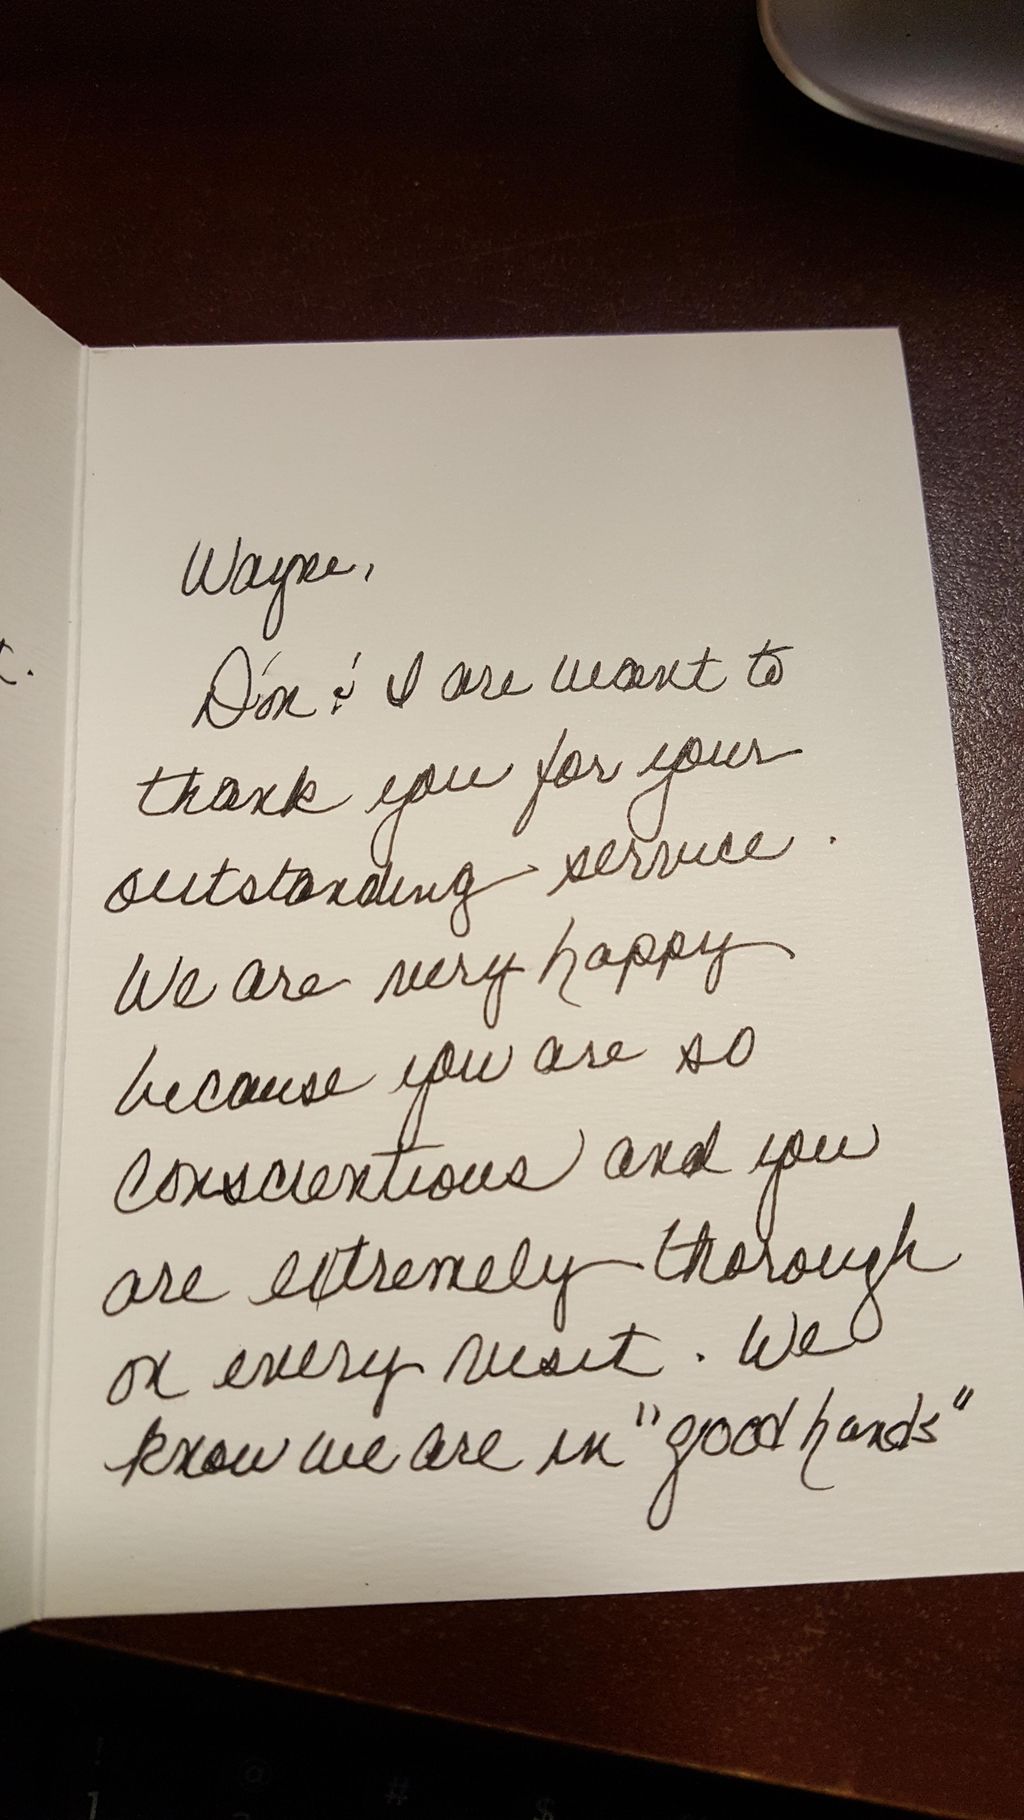 Wayne,
Don & I are want to
thank you for your
outstanding service.
We are very happy
because you are so
conscientious and you
are extremely thorough
on every visit. We
know we are in "good hands"
1 @ # $